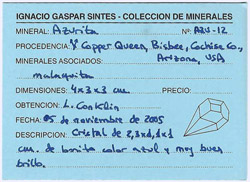 IGNACIO GASPAR SINTES - COLECCION DE MINERALES
MINERAL: Azurita Nº: AZU-12
PROCEDENCIA: Copper Queen, Bisbee, Cochise Co., Arizona, USA
MINERALES ASOCIADOS:
malaquita
DIMENSIONES: 4x3x3 cm PRECIO:
OBTENCION: L. Conklin
FECHA: 05 de noviembre de 2005
DESCRIPCION: Cristal de 2,3x1,1x1
cm. de bonito color azul y muy buen
brillo.